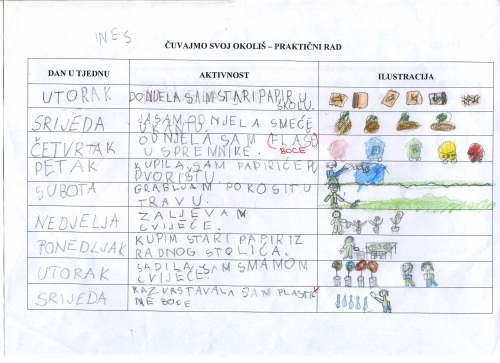 INES
ČUVAJMO SVOJ OKOLIŠ – PRAKTIČNI RAD
DAN U TJEDNU AKTIVNOST ILUSTRACIJA
UTORAK DONIJELA SAM STARI PAPIR U
ŠKOLU.
SRIJEDA JA SAM DONJELA SMEĆE
U KANTU.
ČETVRTAK ODNJELA SAM PLAS
U SPREMNIKE. BOCE
PETAK KUPILA SAM PAPIRIĆE PO
DVORIŠTU.
SUBOTA GRABLJAM POKOSITU
TRAVU.
NEDJELJA ZALJEVAM
CVIJEĆE.
PONEDLJAK KUPIM STARI PAPIR IZ
RADNOG STOLIĆA.
UTORAK SADILA SAM SMAMOM
CVIJEĆE.
SRIJEDA RAZVRSTAVALA SAM PLASTIČ
NE BOCE